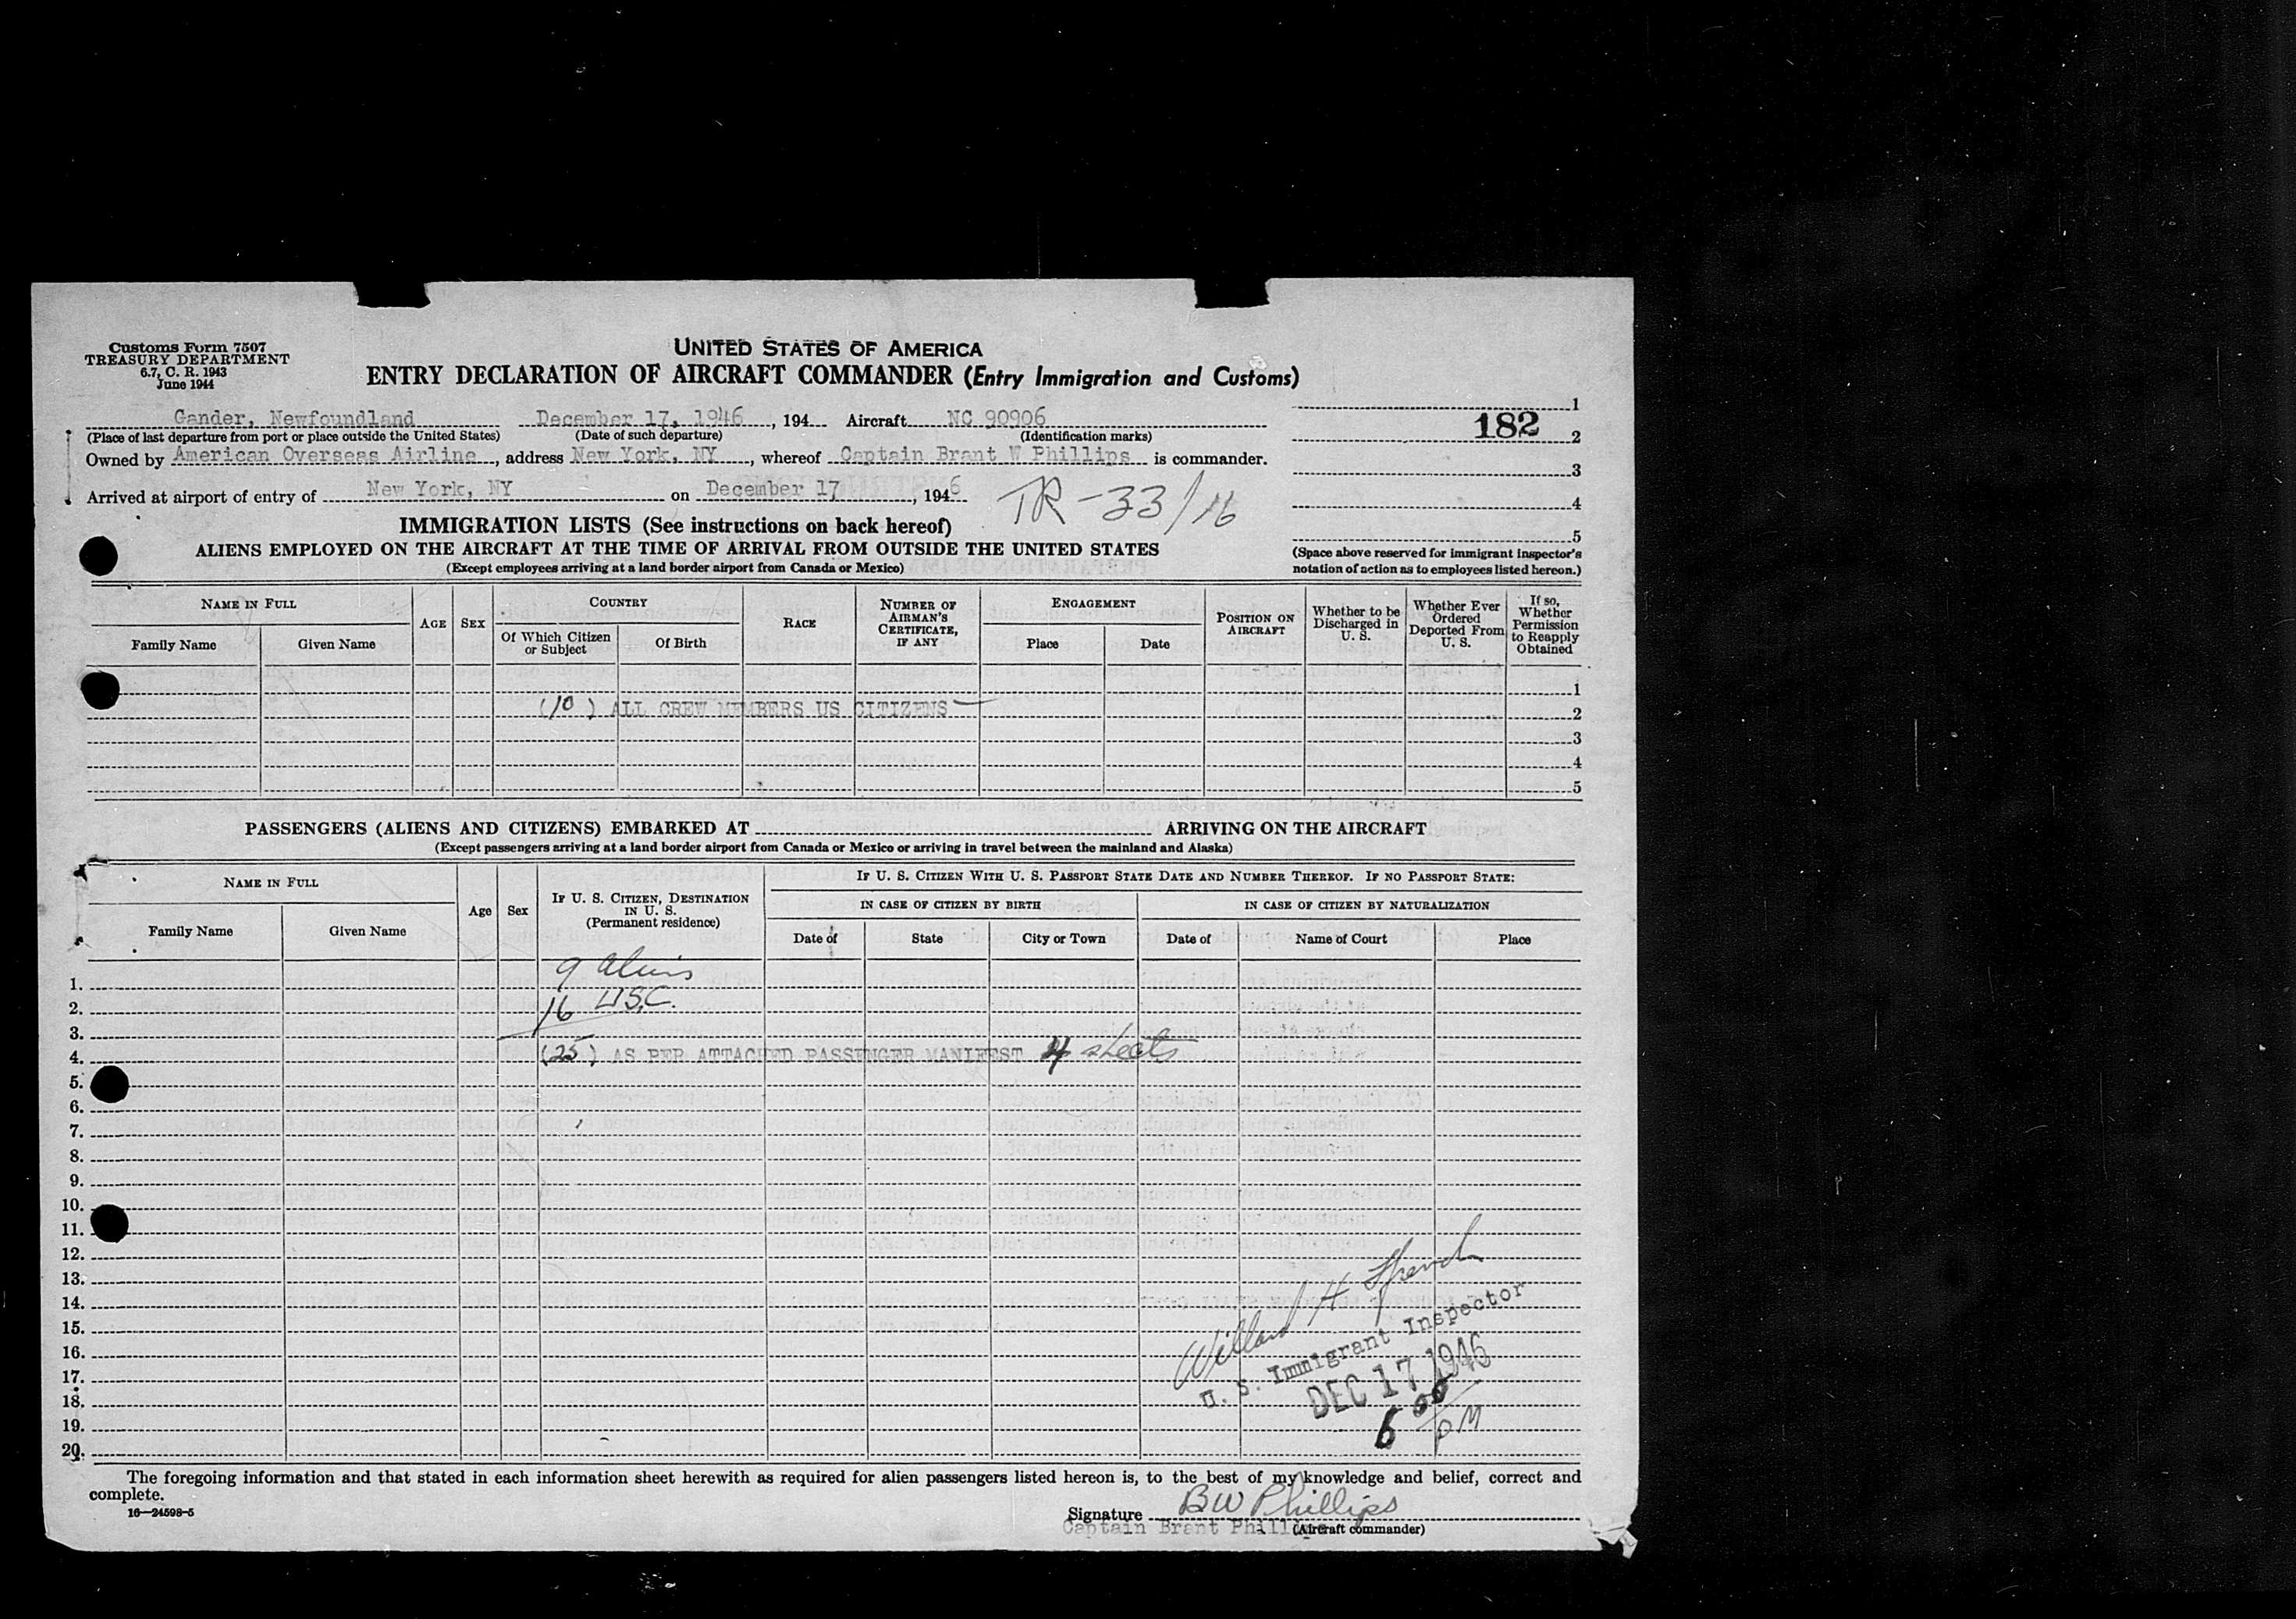 Customs Form 7507
TREASURY DEPARTMENT
6.7, C. R. 1943
June 1944
UNITED STATES OF AMERICA
ENTRY DECLARATION OF AIRCRAFT COMMANDER (Entry Immigration and Customs)
Gander, Newfoundland December 17, 1946, 194 Aircraft NC 90906
(Place of last departure from port or place outside the United States) (Date of such departure) (Identification marks)
Owned by American Overseas Airline, address New York, NY, whereof Captain Brant W Phillips is commander.
Arrived at airport of entry of New York, NY on December 17, 1946
TR-33/16
1
182
2
3
4
5
(Space above reserved for immigrant inspector's
notation of action as to employees listed hereon.)
IMMIGRATION LISTS (See instructions on back hereof)
ALIENS EMPLOYED ON THE AIRCRAFT AT THE TIME OF ARRIVAL FROM OUTSIDE THE UNITED STATES
(Except employees arriving at a land border airport from Canada or Mexico)
NAME IN FULL
Family Name
Given Name
AGE
SEX
COUNTRY
Of Which Citizen
or Subject
Of Birth
RACE
NUMBER OF
AIRMAN'S
CERTIFICATE,
IF ANY
ENGAGEMENT
Place
Date
POSITION ON
AIRCRAFT
Whether to be
Discharged in
U. S.
Whether Ever
Ordered
Deported From
U. S.
If so,
Whether
Permission
to Reapply
Obtained
1
(10) ALL CREW MEMBERS US CITIZENS 2
3
4
5
PASSENGERS (ALIENS AND CITIZENS) EMBARKED AT ARRIVING ON THE AIRCRAFT
(Except passengers arriving at a land border airport from Canada or Mexico or arriving in travel between the mainland and Alaska)
NAME IN FULL
Family Name
Given Name
Age
Sex
IF U. S. CITIZEN, DESTINATION
IN U. S.
(Permanent residence)
IF U. S. CITIZEN WITH U. S. PASSPORT STATE DATE AND NUMBER THEREOF. IF NO PASSPORT STATE:
IN CASE OF CITIZEN BY BIRTH
IN CASE OF CITIZEN BY NATURALIZATION
Date of
State
City or Town
Date of
Name of Court
Place
1. 9 aliens
2. 16 USC.
3.
4. (25) AS PER ATTACHED PASSENGER MANIFEST 4 sheets
5.
6.
7.
8.
9.
10.
11.
12.
13.
14.
15.
16.
17.
18.
19.
20.
Willard H
U. S. Immigrant Inspector
DEC 17 1946
6 00 PM
The foregoing information and that stated in each information sheet herewith as required for alien passengers listed hereon is, to the best of my knowledge and belief, correct and
complete.
16—24598-5
Signature BW Phillips
Captain Brant Phillips (Aircraft commander)